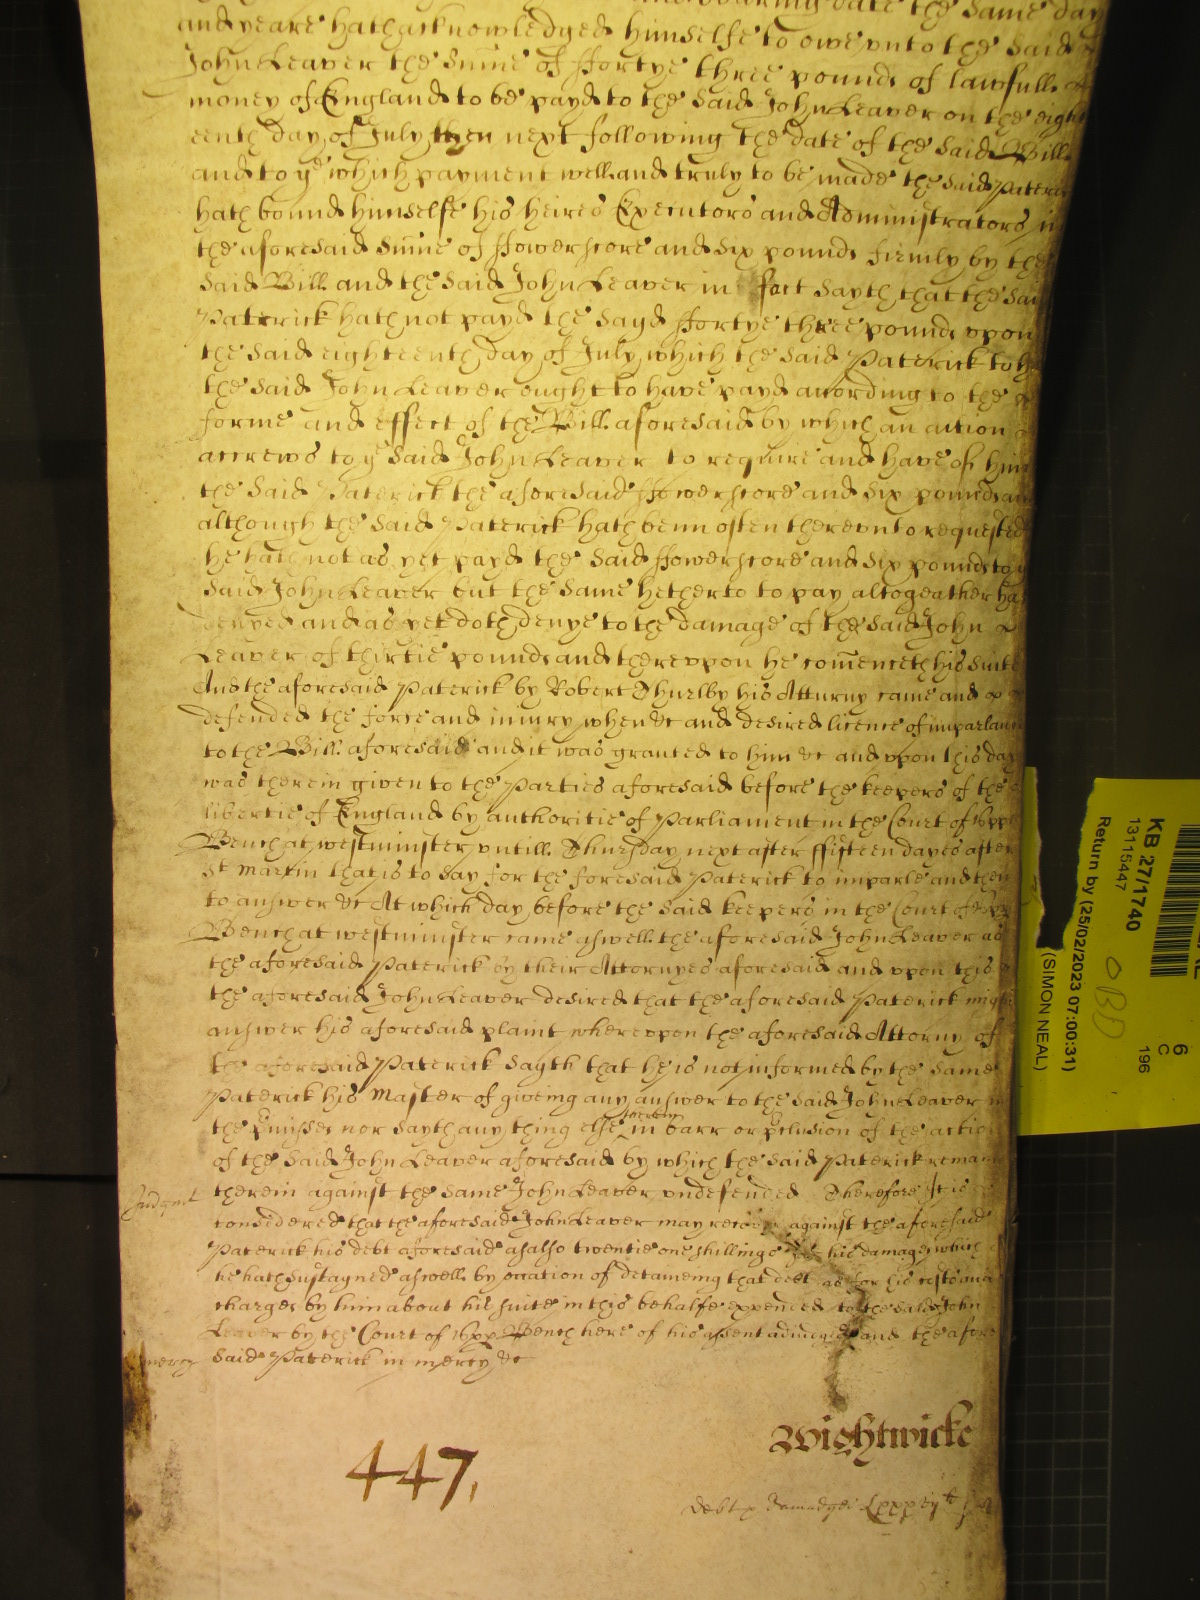 bearing date the same day
and yeare hath acknowledged himselfe to owe vnto the said
John Leaver the sum̄e of ffortye three pounds of lawfull
money of England to be payd to the said John Leaver on the eight
eenth day of July then next following the date of the said Bill
and to ye which payment well and truly to be made the said Paterick
hath bound himselfe his heires Executors and Administrators in
the aforesaid sum̄e of ffowerscore and six pounds firmly by the
said Bill and the said John Leaver in fact sayth that the said
Paterick hath not payd the sayd ffortye three pounds vpon
the said eighteenth day of July which the said Paterick to h
the said John Leaver ought to have payd according to the
forme and effect of the Bill aforesaid by which an action
accrews to ye said John Leaver to require and have of him
the said Paterick the aforesaid ffowerscore and six pounds and
although the said Paterick hath benn often therevnto requested
he hath not as yet payd the said ffowerscore and six pounds to
said John Leaver but the same hetherto to pay altogeather ha
denyed and as yet doth denye to the damage of the said John
Leaver of thirtie pounds and therevpon he com̄enceth his suite
And the aforesaid Paterick by Robert Thurlby his Atturny came and
defended the force and iniury when &c and desired licence of imparlance
to the Bill aforesaid and it was granted to him &c and vpon this day
was therein given to the Parties aforesaid before the keepers of the
libertie of England by authoritie of Parliament in the Court of Vpp
Bench at westminster vntill Thursday next after ffifteen dayes after
St Martin that is to say for the foresaid Paterick to imparle and then
to answer &c At which day before the said keepers in the Court of Vpp
Bench at westminster came aswell the aforesaid John Leaver as
the aforesaid Paterick by their Attornyes aforesaid and vpon this
the aforesaid John Leaver desired that the aforesaid Paterick might
answer his aforesaid plaint wherevpon the aforesaid Attorny of
the aforesaid Paterick sayth that he is not informed by the same
Paterick his Master of giveing any answer to the said John Leaver in
the p̄misses nor sayth any thing else therein in barr or p̄clusion of the action
of the said John Leaver aforesaid by which the said Paterick remain
Judgmt therein against the same John Leaver vndefended Therefore It is
considered that the aforesaid John Leaver may recover against the aforesaid
Paterick his debt aforesaid as also twentie one shillings for his damages which
he hath sustayned aswell by occation of detaineing that debt as for his costs and
charges by him about his suite in this behalfe expended to the said John
Leaver by the Court of Vpp Bench here of his assent adiudged and the afore
mercy said Paterick in mercy &c
Wightwicke
447,
debt & damadges
KB 27/1740
13115447
Return by (25/02/2023 07:00:31)
(SIMON NEAL)
OBD
6
C
196